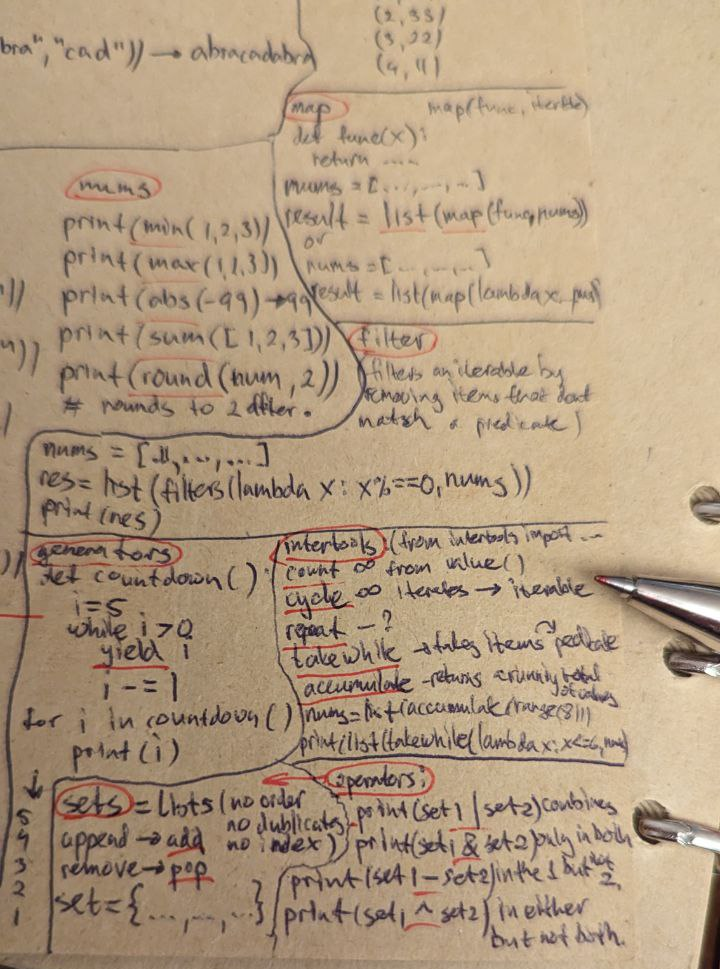 bra","cad")) → abracadabra
(2, 33)
(3, 22)
(4, 11)
map
map(func, iterble)
def func(x):
return ....
nums = [...,...,...]
result = list(map(func,nums))
or
nums = [...,...,...]
result = list(map(lambda x
nums
print(min(1,2,3))
print(max(1,2,3))
print(abs(-99) → 99
print(sum([1,2,3]))
print(round(num,2))
# rounds to 2 after .
filter
(filters an iterable by
removing items that dont
match a predicate)
nums = [..,...,...]
res = list(filters(lambda x: x%==0, nums))
print(res)
generators
def countdown():
i=5
while i>0
yield i
i -= 1
for i in countdown()
print(i)
↓
5
4
3
2
1
intertools (from intertools import ...
count ∞ from value()
cycle ∞ iterates → iterable
repeat - ?
takewhile → takes items
accumulate - returns a running total of values
nums=list(accumulate(range(8)))
print(list(takewhile(lambda x: x<=6, nums)
sets = Lists (no order
no dublicates
no index)
append → add
remove → pop
set = {...,...,...}
operators:
print(set1 | set2) combines
print(set1 & set2) only in both
print(set1 - set2) in the 1 but not 2,
print(set1 ^ set2) in either
but not both.